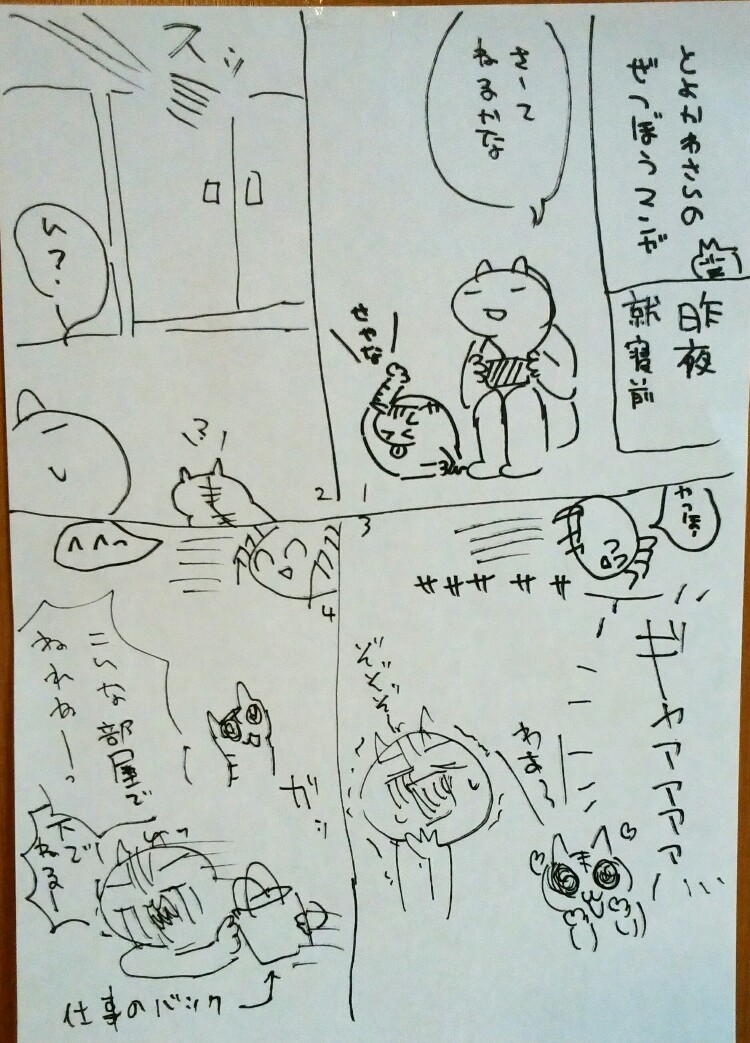 とよかわさんの
ぜつぼうマンガ
昨夜
就寝前
さーて
ねるかな
せやな
1
スッ
ん?
2
3
やっほー
ササササササ
ギャアアアアア
わぁ〜
ぞぞぞぞ〜
4
へへっ
こんな部屋で
ねれねーっ
ガッ
下で
ねるー
仕事のバック